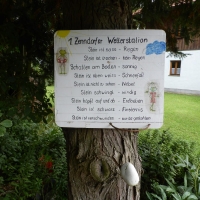 1. Zenndorfer Wetterstation
Stein ist nass - Regen
Stein ist trocken - kein Regen
Schatten am Boden - sonnig
Stein ist oben weiss - Schneefall
Stein ist nicht zu sehen - Nebel
Stein schwingt - windig
Stein hüpft auf und ab - Erdbeben
Stein ist schwarz - Finsternis
Stein ist verschwunden - wurde gestohlen